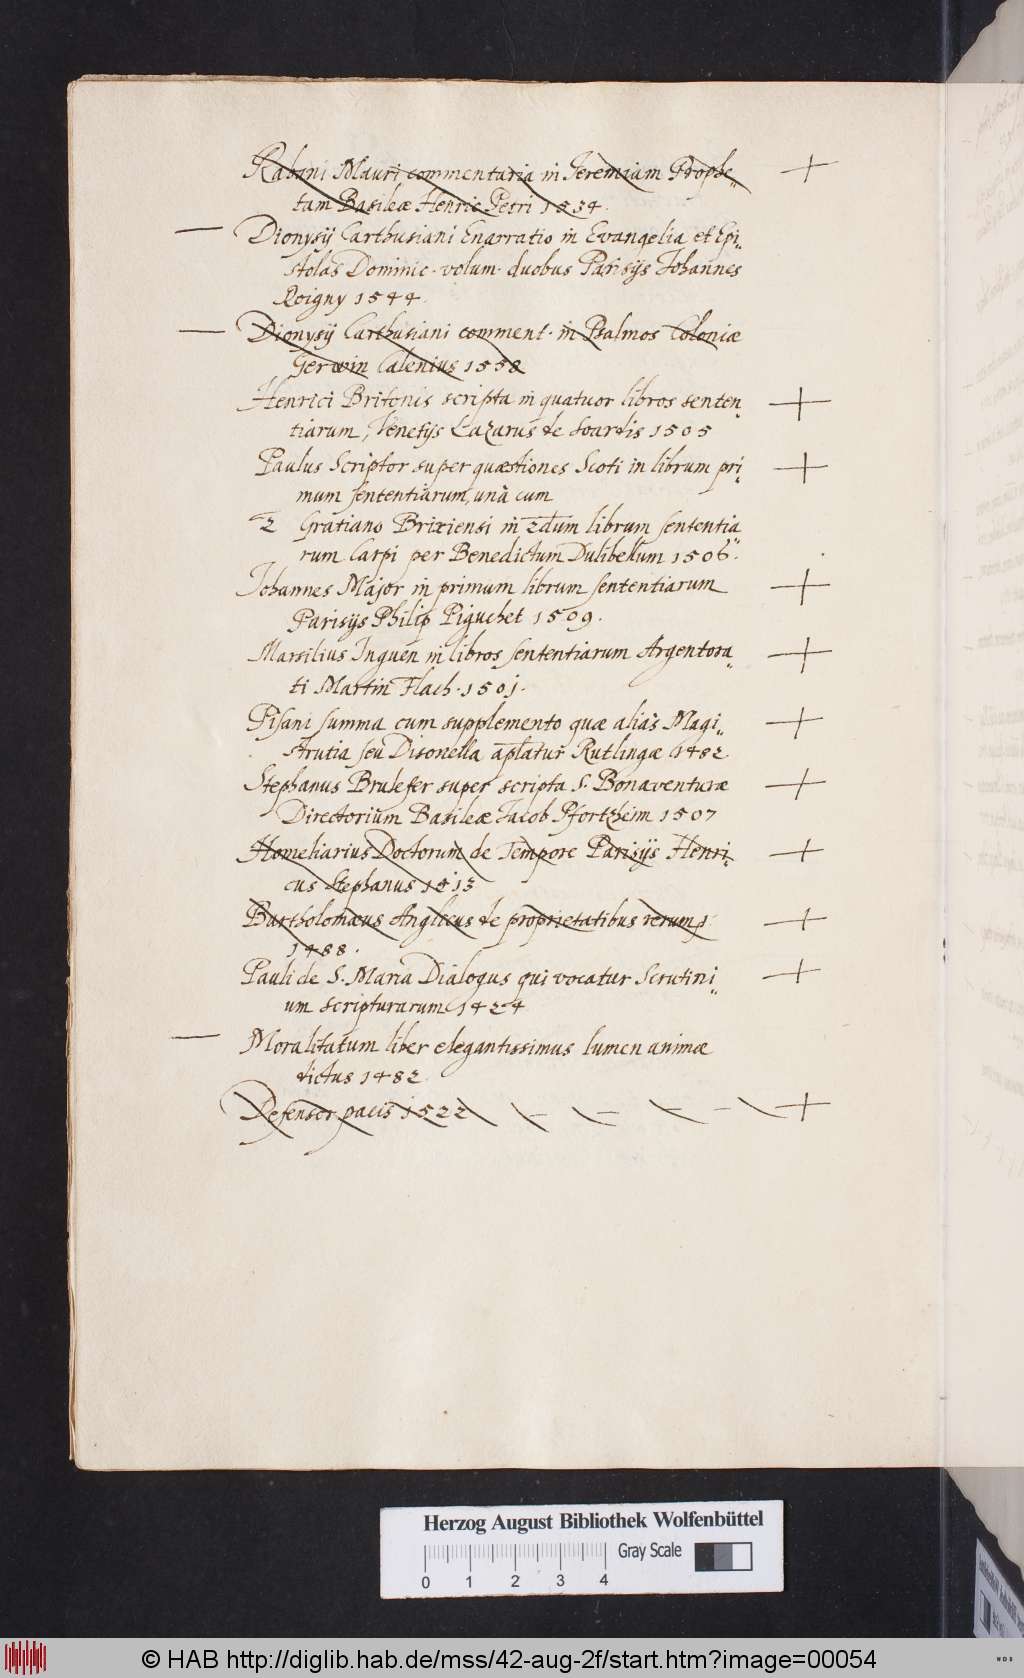 Rabani Mauri commentaria in Jeremiam Prophe„
tam Basileæ Henric Petri 1534.
Dionysij Carthusiani Enarratio in Evangelia et Epi„
stolas Dominic. volum. duobus Parisijs Johannes
Roigny 1544.
Dionysij Carthusiani comment. in Psalmos Coloniæ
Gerwin Calenius 1558
Henrici Britonis scripta in quatuor libros senten„
tiarum, Venetijs Lazarus de Soardis 1505
Paulus Scriptor super quæstiones Scoti in librum pri„
mum sententiarum, unà cum
2 Gratiano Brixiensi in 2dum librum sententia„
rum Carpi per Benedictum Dulibellum 1506.
Johannes Major in primum librum sententiarum
Parisijs Philip Piguchet 1509.
Marsilius Inguen in libros sententiarum Argentora„
ti Martin Flach. 1501.
Pisani summa cum supplemento quæ aliàs Magi„
strutia seu Disonella aplatur Rutlingæ 1482.
Stephanus Brulefer super scripta S. Bonaventuræ
Directorium Basileæ Jacob Pfortzheim 1507
Homeliarius Doctorum de Tempore Parisijs Henri„
cus Stephanus 1513
Bartholomæus Anglicus de proprietatibus rerum
1488.
Pauli de S. Maria Dialogus qui vocatur Scrutini„
um scripturarum 1424
Moralitatum liber elegantissimus lumen animæ
dictus 1482.
Defensor pacis 1522
Herzog August Bibliothek Wolfenbüttel
Gray Scale
0 1 2 3 4
© HAB http://diglib.hab.de/mss/42-aug-2f/start.htm?image=00054